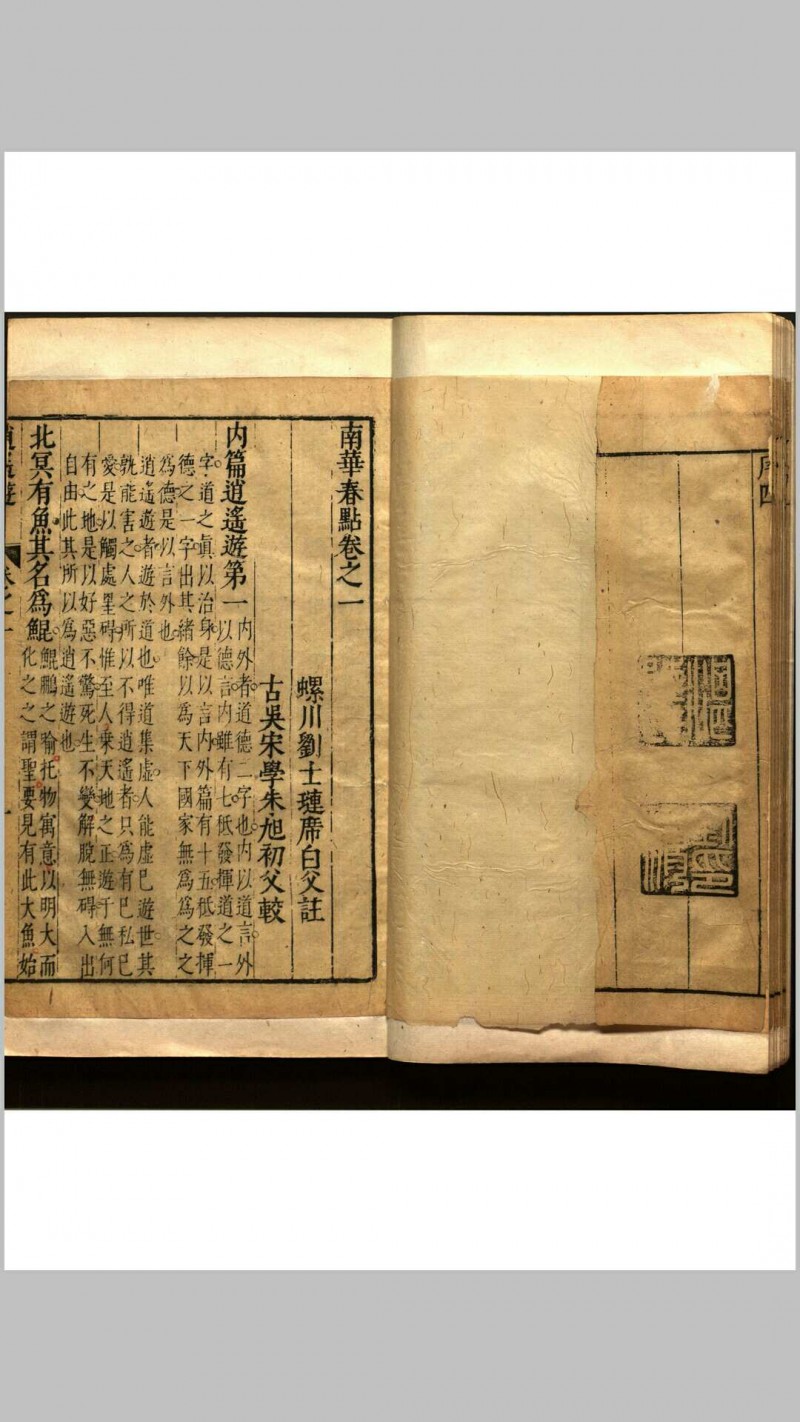 序四
南華春點卷之一
螺川劉士璉席白父註
古吳宋學朱旭初父較
内篇逍遙遊第一
内外者道德二字也内以道言外
以德言内雖有七低發揮道之一
字道之眞以治身是以言内外篇有十五低發揮
德之一字出其緒餘以爲天下國家無爲爲之之
爲德是以言外也
逍遙遊者遊於道也唯道集虛人能虛巳遊世其
孰能害之人之所以不得逍遙者只爲有巳私巳
愛是以觸處罣碍惟至人乘天地之正遊于無何
有之地是以好惡不驚死生不變解脫無碍入出
自由此其所以爲逍遙遊也
北冥有魚其名爲鯤
鯤鵬之喻托物寓意以明大而
化之之謂聖要見有此大魚始
逍遙遊
卷之一
一